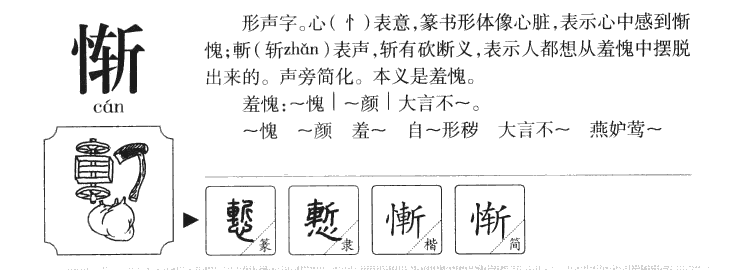 惭
cán
形声字。心(忄)表意,篆书形体像心脏,表示心中感到惭
愧;斬(斩zhǎn)表声,斩有砍断义,表示人都想从羞愧中摆脱
出来的。声旁简化。本义是羞愧。
羞愧:～愧|～颜|大言不～。
～愧 ～颜 羞～ 自～形秽 大言不～ 燕妒莺～
慙 篆
慙 隶
慚 楷
惭 简